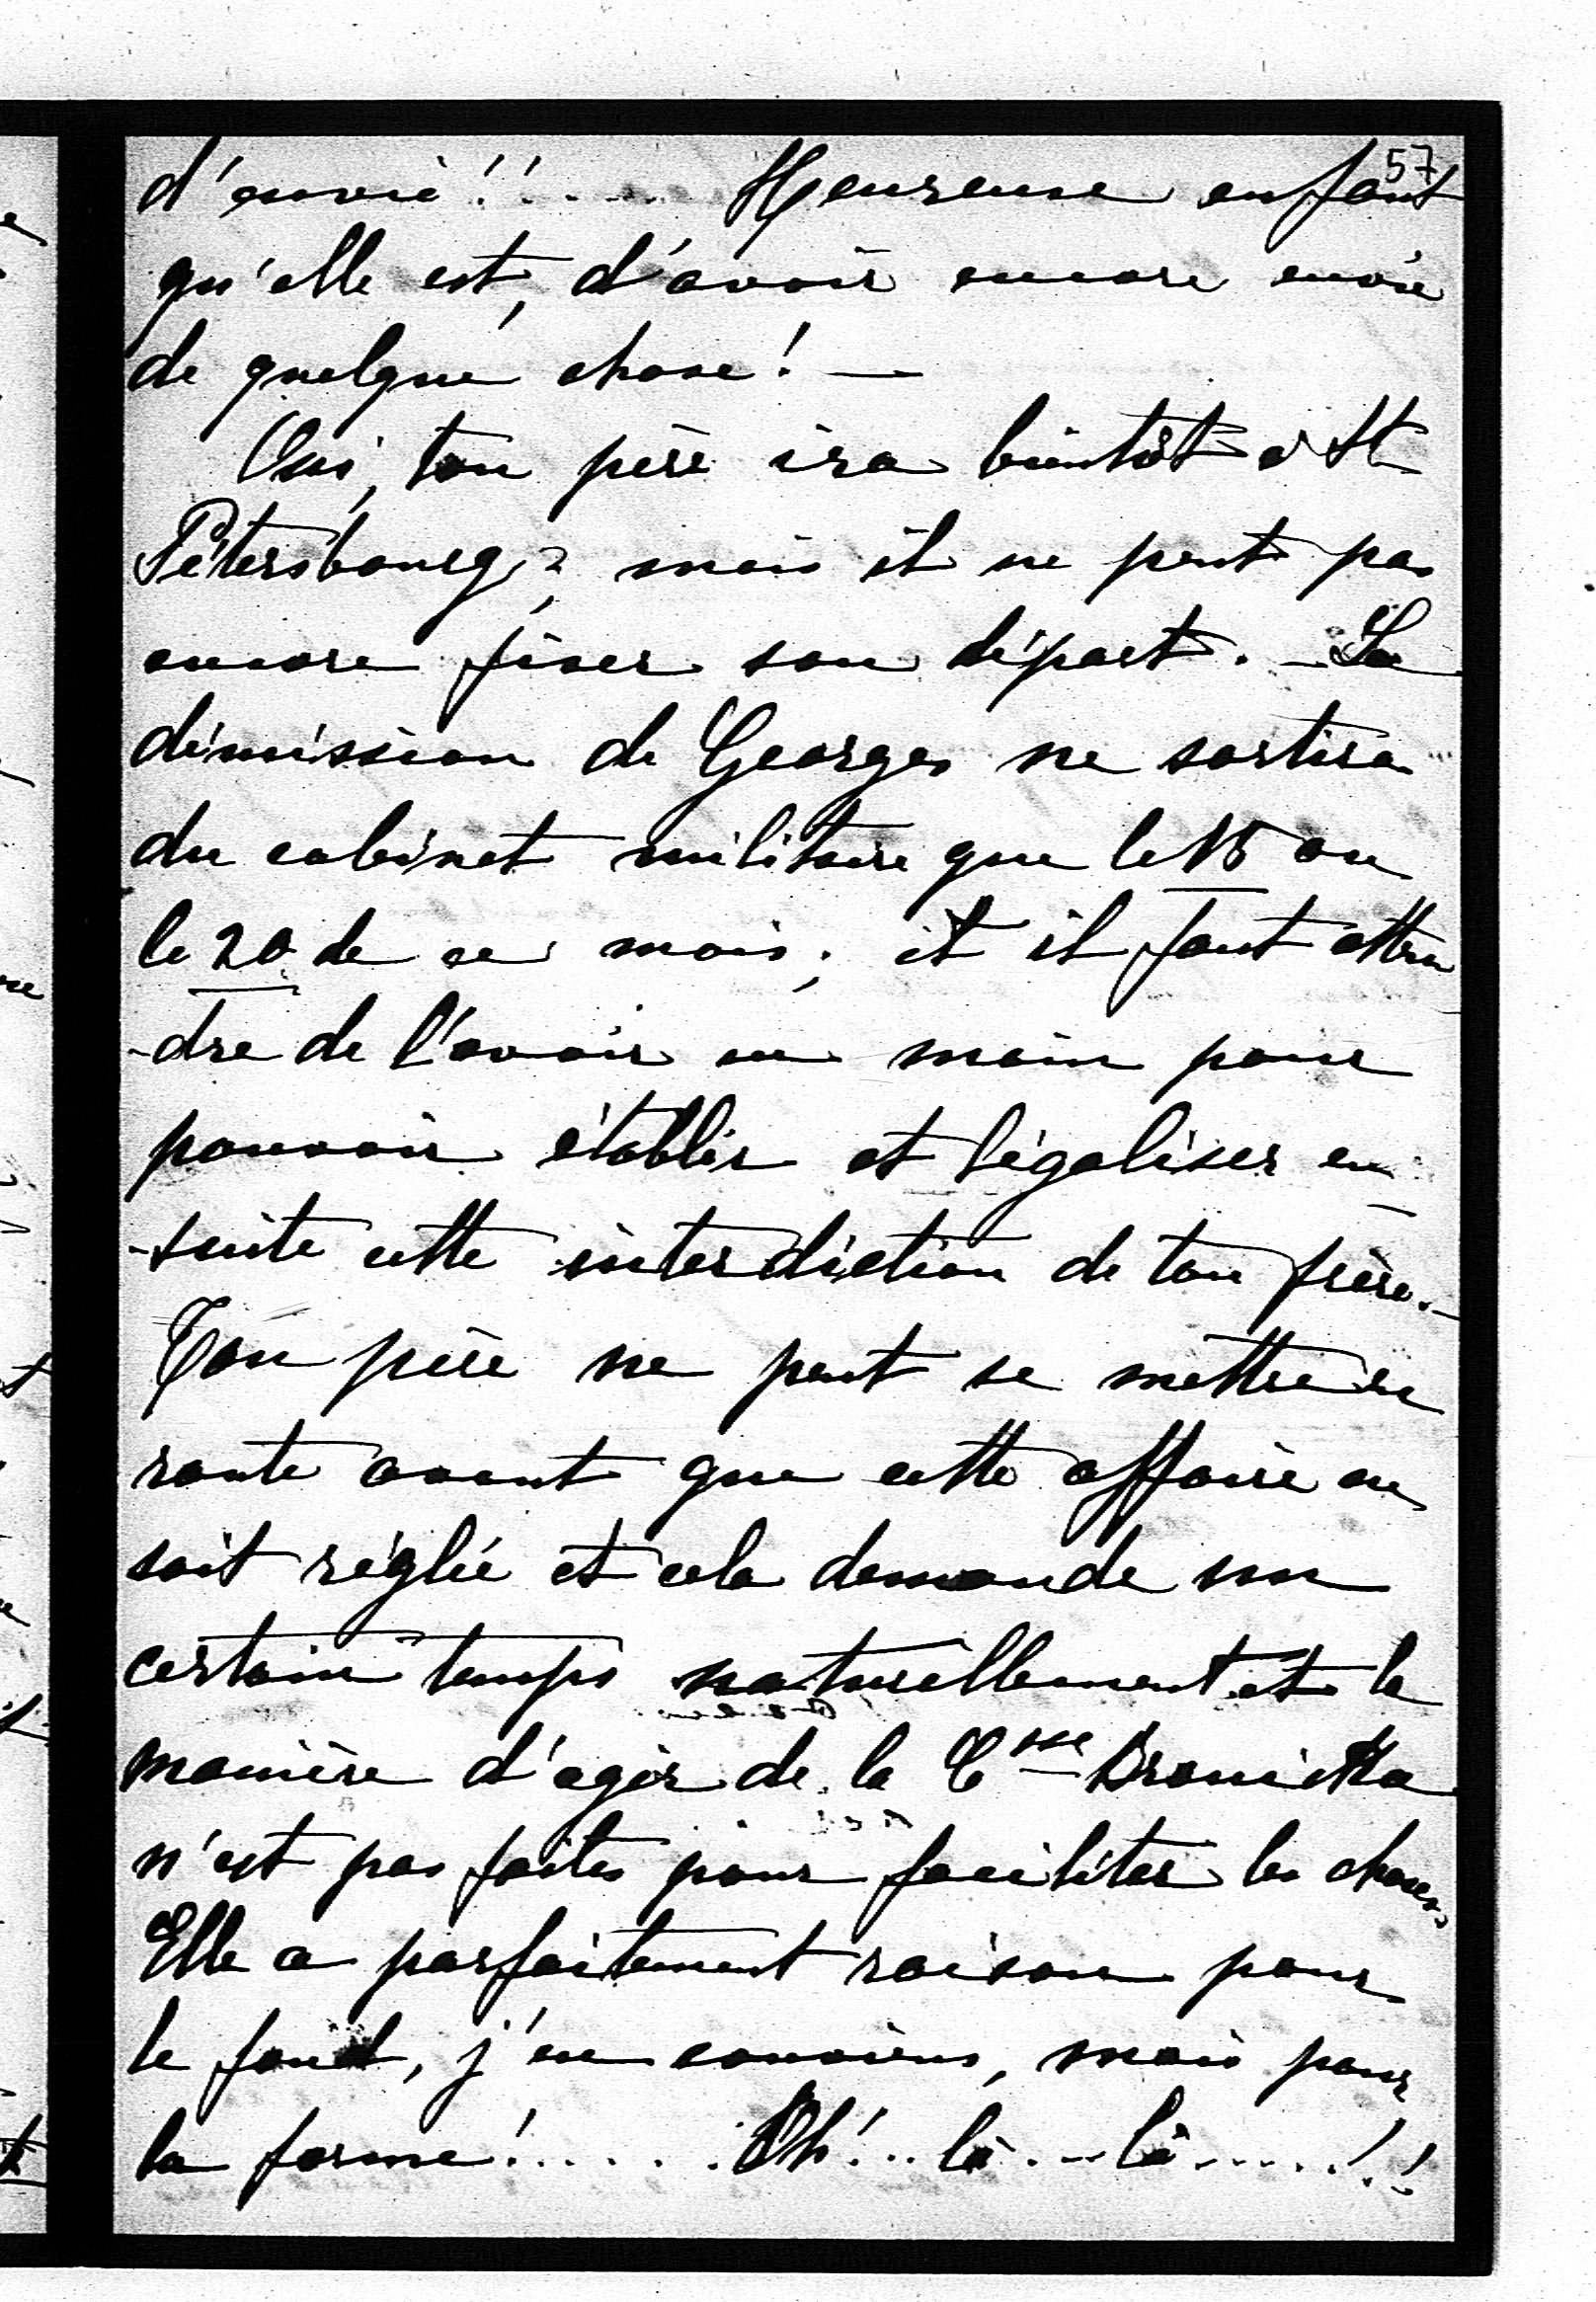 57
d'envie!!.... Heureuse enfant
qu'elle est, d'avoir encore envie
de quelque chose! —
Oui, ton père ira bientôt à St
Pétersbourg, mais il ne peut pas
encore fixer son départ. — La
démission de Georges ne sortira
du cabinet militaire que le 15 ou
le 20 de ce mois; et il faut atten
-dre de l'avoir en main pour
pouvoir établir et légaliser en
-suite cette interdiction de ton frère. —
Ton père ne peut se mettre en
route avant que cette affaire en
soit réglée et cela demande un
certain temps naturellement et la
manière d'agir de la Csse
n'est pas faites pour faciliter les choses.
Elle a parfaitement raison pour
le fond, j'en conviens, mais pour
la forme!...... Oh!... là... là.....!!